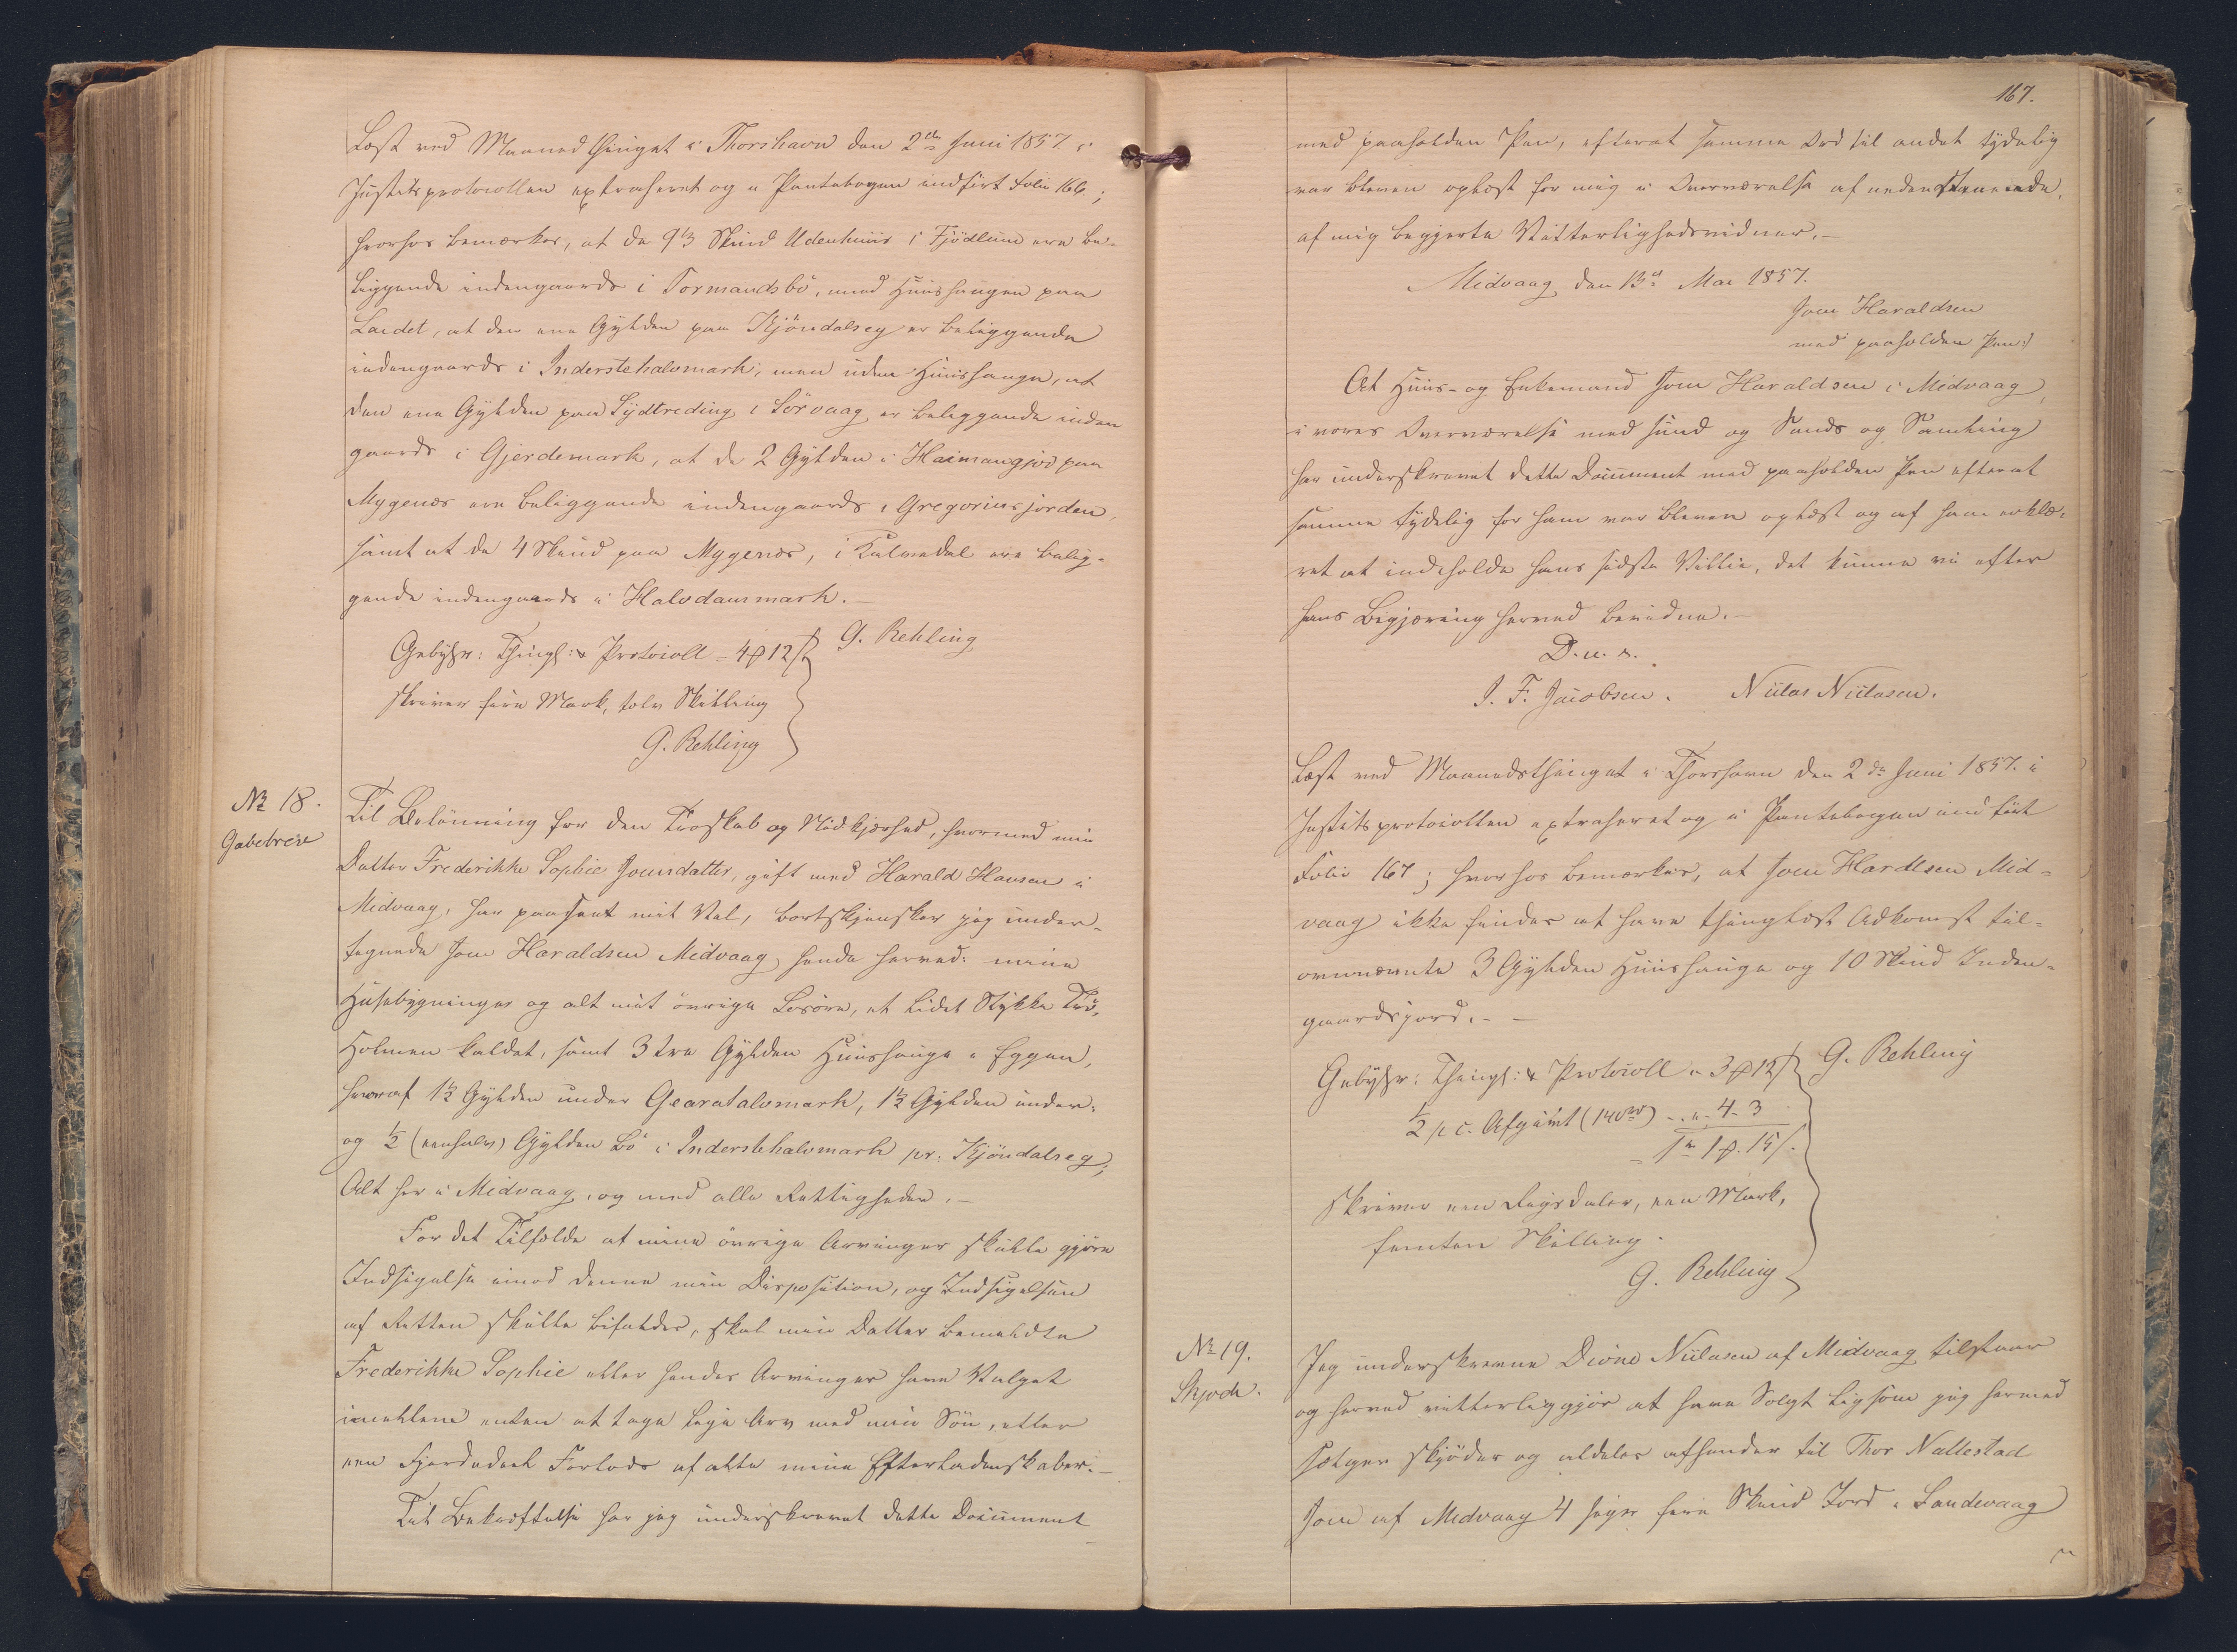 Læst ved Maanedsthinget i Thorshavn den 2den Juni 1857. i
Justitsprotocollen extraheret og i Pantebogen indført Folio 166.;
hvorhos bemærkes, at de 9 1/3 Skind Udenhuus i Fjödlum ere be-
liggende indengaards i Tormandsbö, med Huushaugen paa
Lardet, at den ene Gylden paa Kjöndalseg er beliggende
indengaards i Inderstehalvmark, men uden Huushauge, at
den ene Gylden paa Sydtreding i Sörvaag er beliggende inden
gaards i Gjerdemark, at de 2 Gylden i Heimangjov paa
Mygenæs ere beliggende indengaards i Gregoriusjorden,
samt at de 4 Skind paa Mygenæs, i Kalvedal ere belig-
gende indengaards i Halvdansmark.-
Gebyhr: Thingl: & Protocoll = 4 ₰ 12 /
G. Rehling
skriver fire Mark, tolv Skilling
G. Rehling
No 18.
Gavebrev
Til Belönning for den Troskab og Nidkjærhed, hvormed min
Datter Frederikke Sophie Joensdatter, gift med Harald Hansen i
Midvaag, har paaseet mit Vel, bortskjenker jeg under-
tegnede Joen Haraldsen Midvaag, hende herved: mine
Huusebygninger og alt mit övrige Lösöre, et lidet Stykke Tró,
Holmen kaldet, samt 3 tre Gylden Huushauge i Eggen,
hvoraf 1 1/2 Gylden under Gearatalvmark, 1 1/2 Gylden under.
og 1/2 (een halv) Gylden Bö i Inderstehalvmark pr. Kjöndalseg,
Alt her i Midvaag, og med alle Rettigheder.-
For det Tilfælde at mine övrige Arvinger skulle gjöre
Indsigelse imod denne min Disposition, og Indsigelsen
af Retten skulle bifaldes, skal min Datter bemeldte
Frederikke Sophie eller hendes Arvinger have Valget
imellem enten at tage lige Arv med min Sön, eller
een Fjerdedeel Forlods af alle mine Efterladenskaber.-
Til Bekræftelse har jeg underskrevet dette Document
167.
med paaholden Pen, efterat samme Ord til andet tydelig
var bleven oplæst for mig i Overværelse af nedenstaaende,
af mig begjerte Vitterlighedsvidner.-
Midvaag den 13de Mai 1857.
Joen Haraldsen
med paaholden Pen:)
At Huus- og Enkemand Joen Haraldsen i Midvaag,
i vores Overværelse med sund og Sands og Samling
har underskrevet dette Document med paaholden Pen efterat
samme tydelig for ham var bleven oplæst og af ham erklæ-
ret at indeholde hans sidste Villie, det kunne vi efter
hans Begjæring herved bevidne.-
D. u. s.
J. F. Jacobsen. Niilas Niilasen.
Læst ved Maanedsthinget i Thorshavn den 2de Juni 1857. i
Justitsprotocollen extraheret og i Pantebogen indfört
Folio 167; hvorhos bemærkes, at Joen Hardlsen Mid-
vaag ikke findes at have thinglæst Adkomst til
ovennævnte 3 Gylden Huushauge og 10 Skind Inden-
gaardsjord.- -
Gebyhr: Thingl: & Protocoll " 3 ₰ 12 /
G. Rehling
1/2 p c. Afgivt (140 rd) - . " . 4 - 3
= 1 rd 1 ₰ . 15 / .
skriver een Rigsdaler, een Mark,
femten Skilling.
G. Rehling
No 19.
Skjode.
Jeg underskrevne Dióne Niilasen af Midvaag tilstaar
og herved vitterliggjör at have Solgt ligsom jeg hermed
sælger skjöder og aldeles afhender til Thor Nallestad
Joen af Midvaag 4 siger fire Skind Jord i Sandevaag